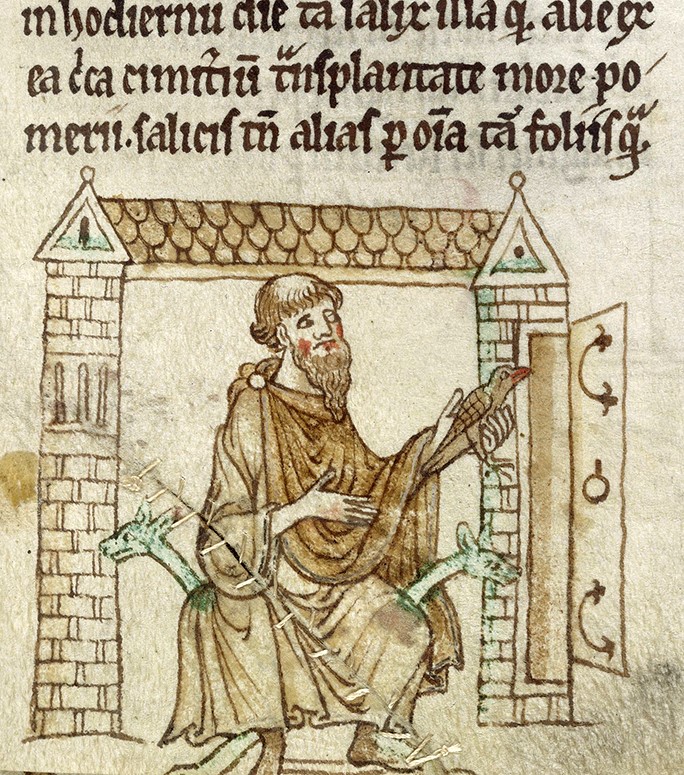 in hodiernū die tā salix illa q̄ alie ex
ea c̄ca cimit̾iū t̾nsplantate more po
merii. salicis tn̄ alias ꝑ oīa tā foliis q̄